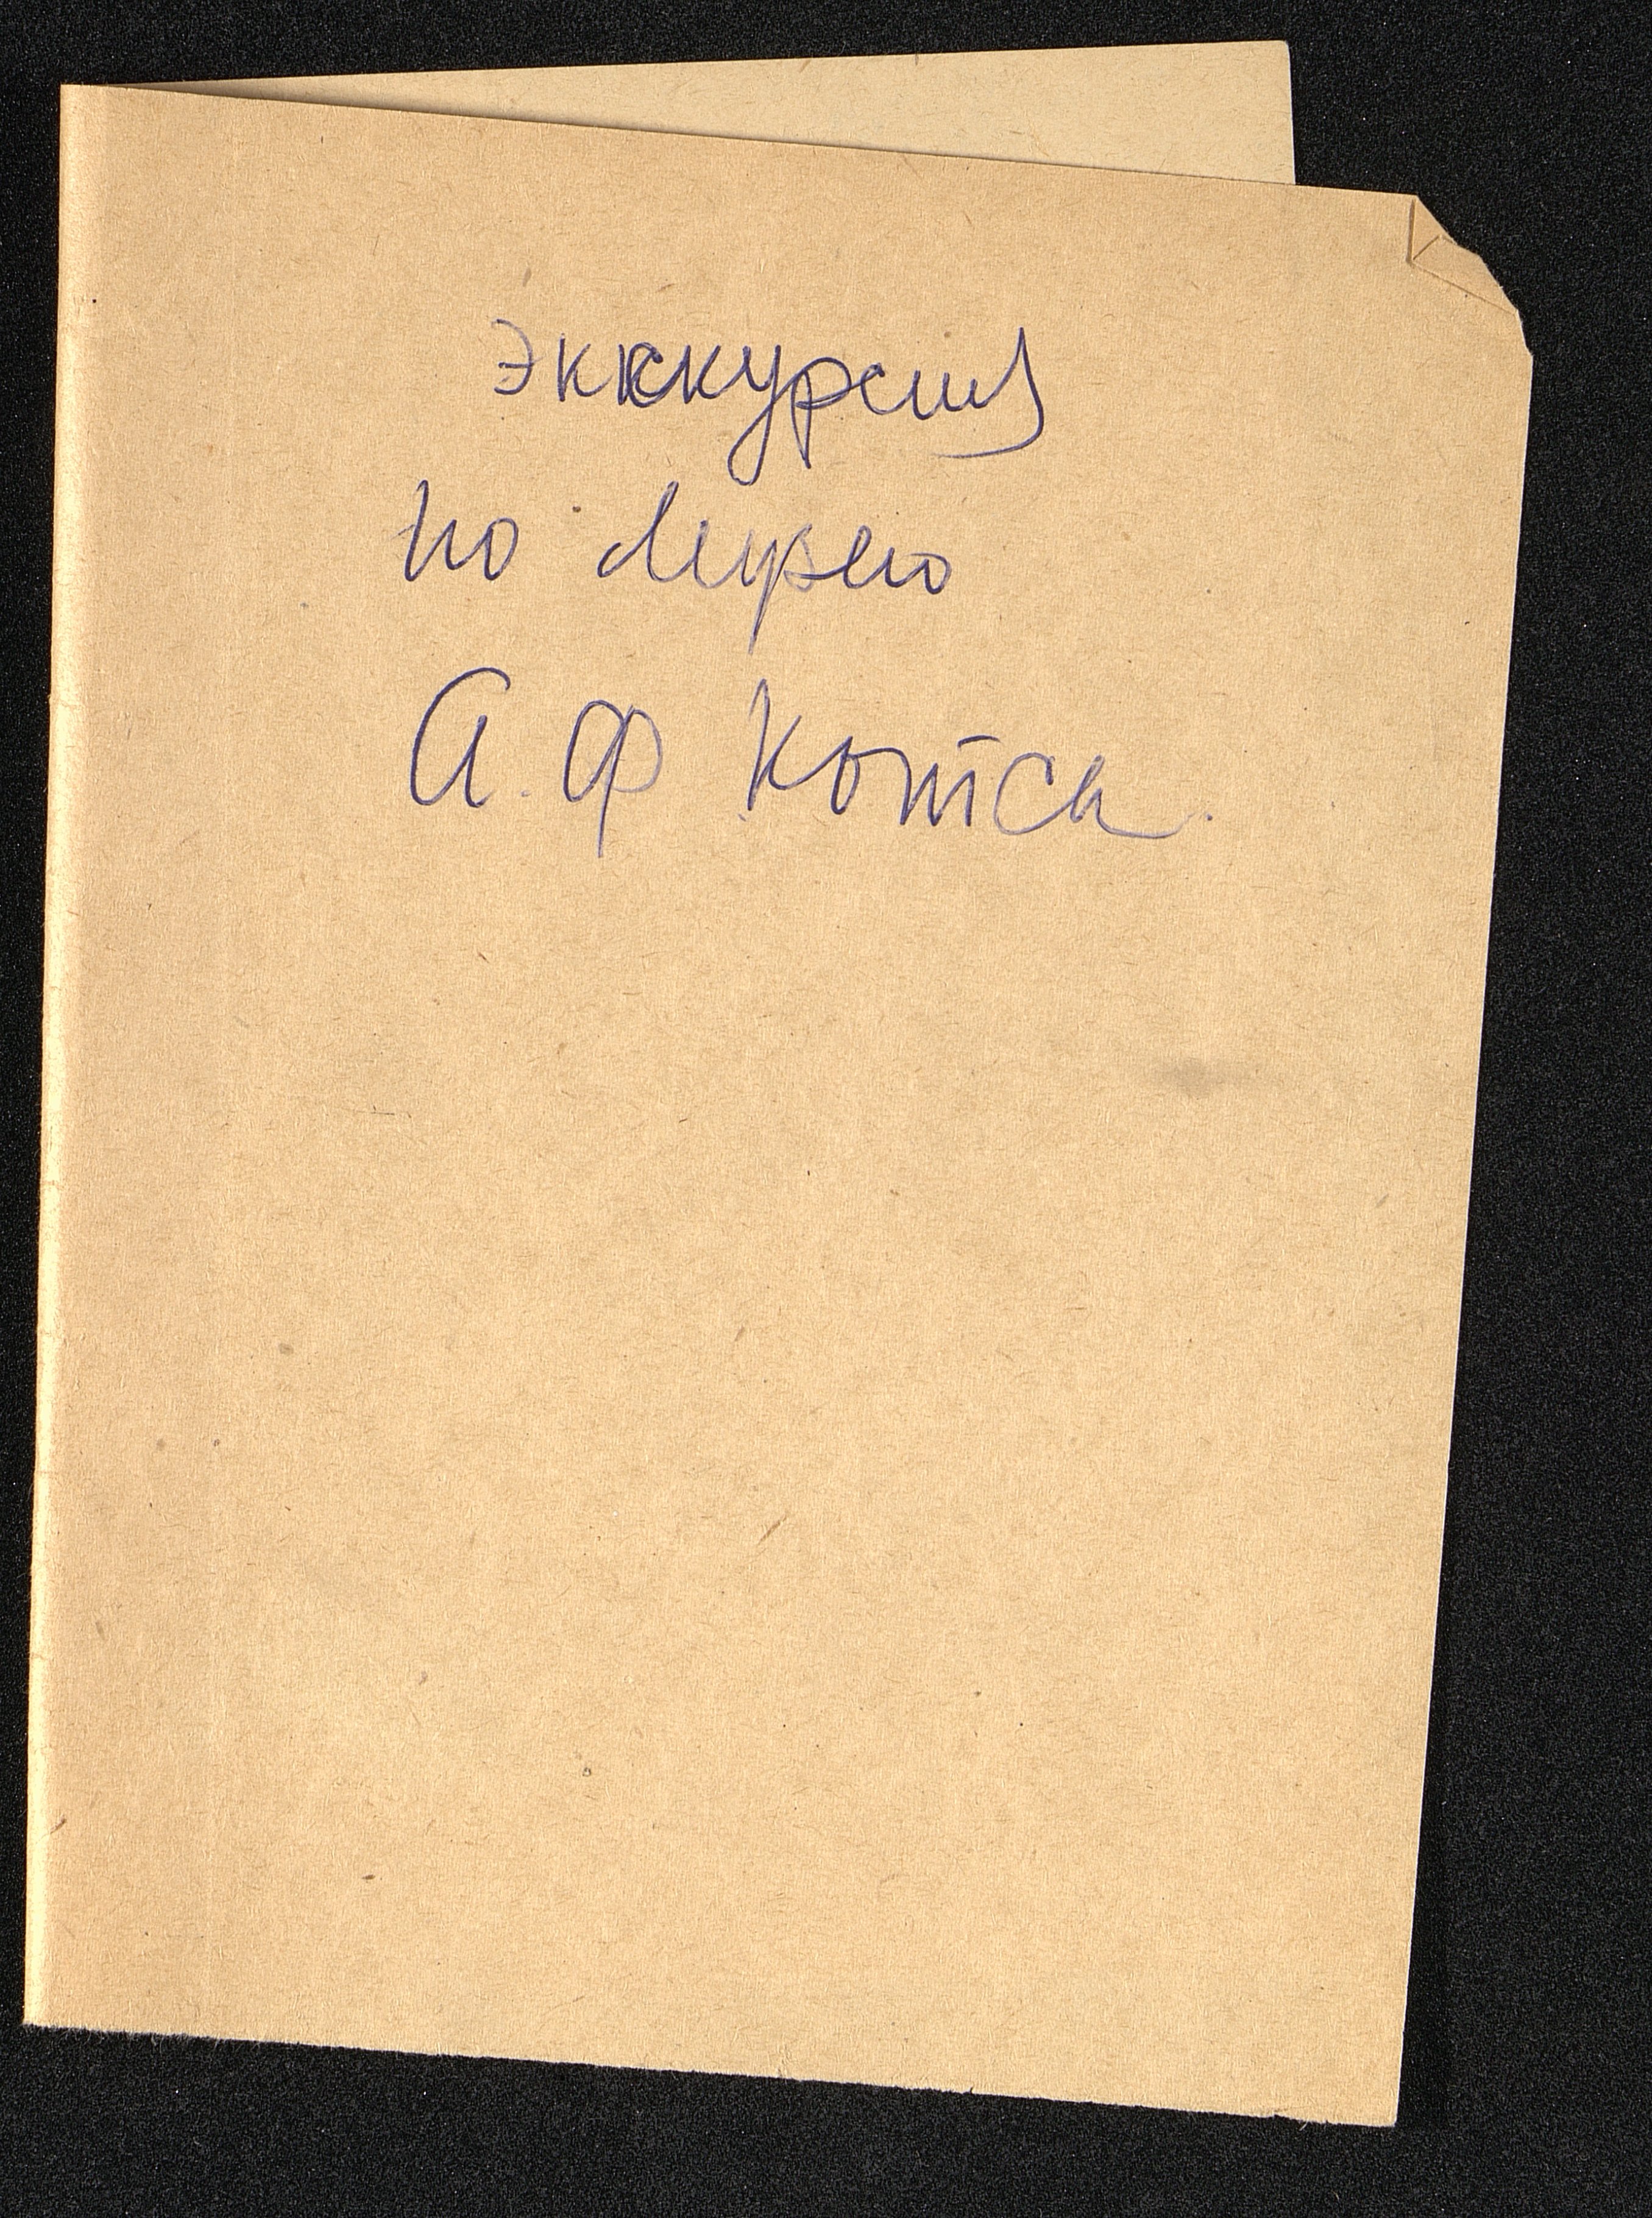 экскурсия
по музею
А. Ф Котса.